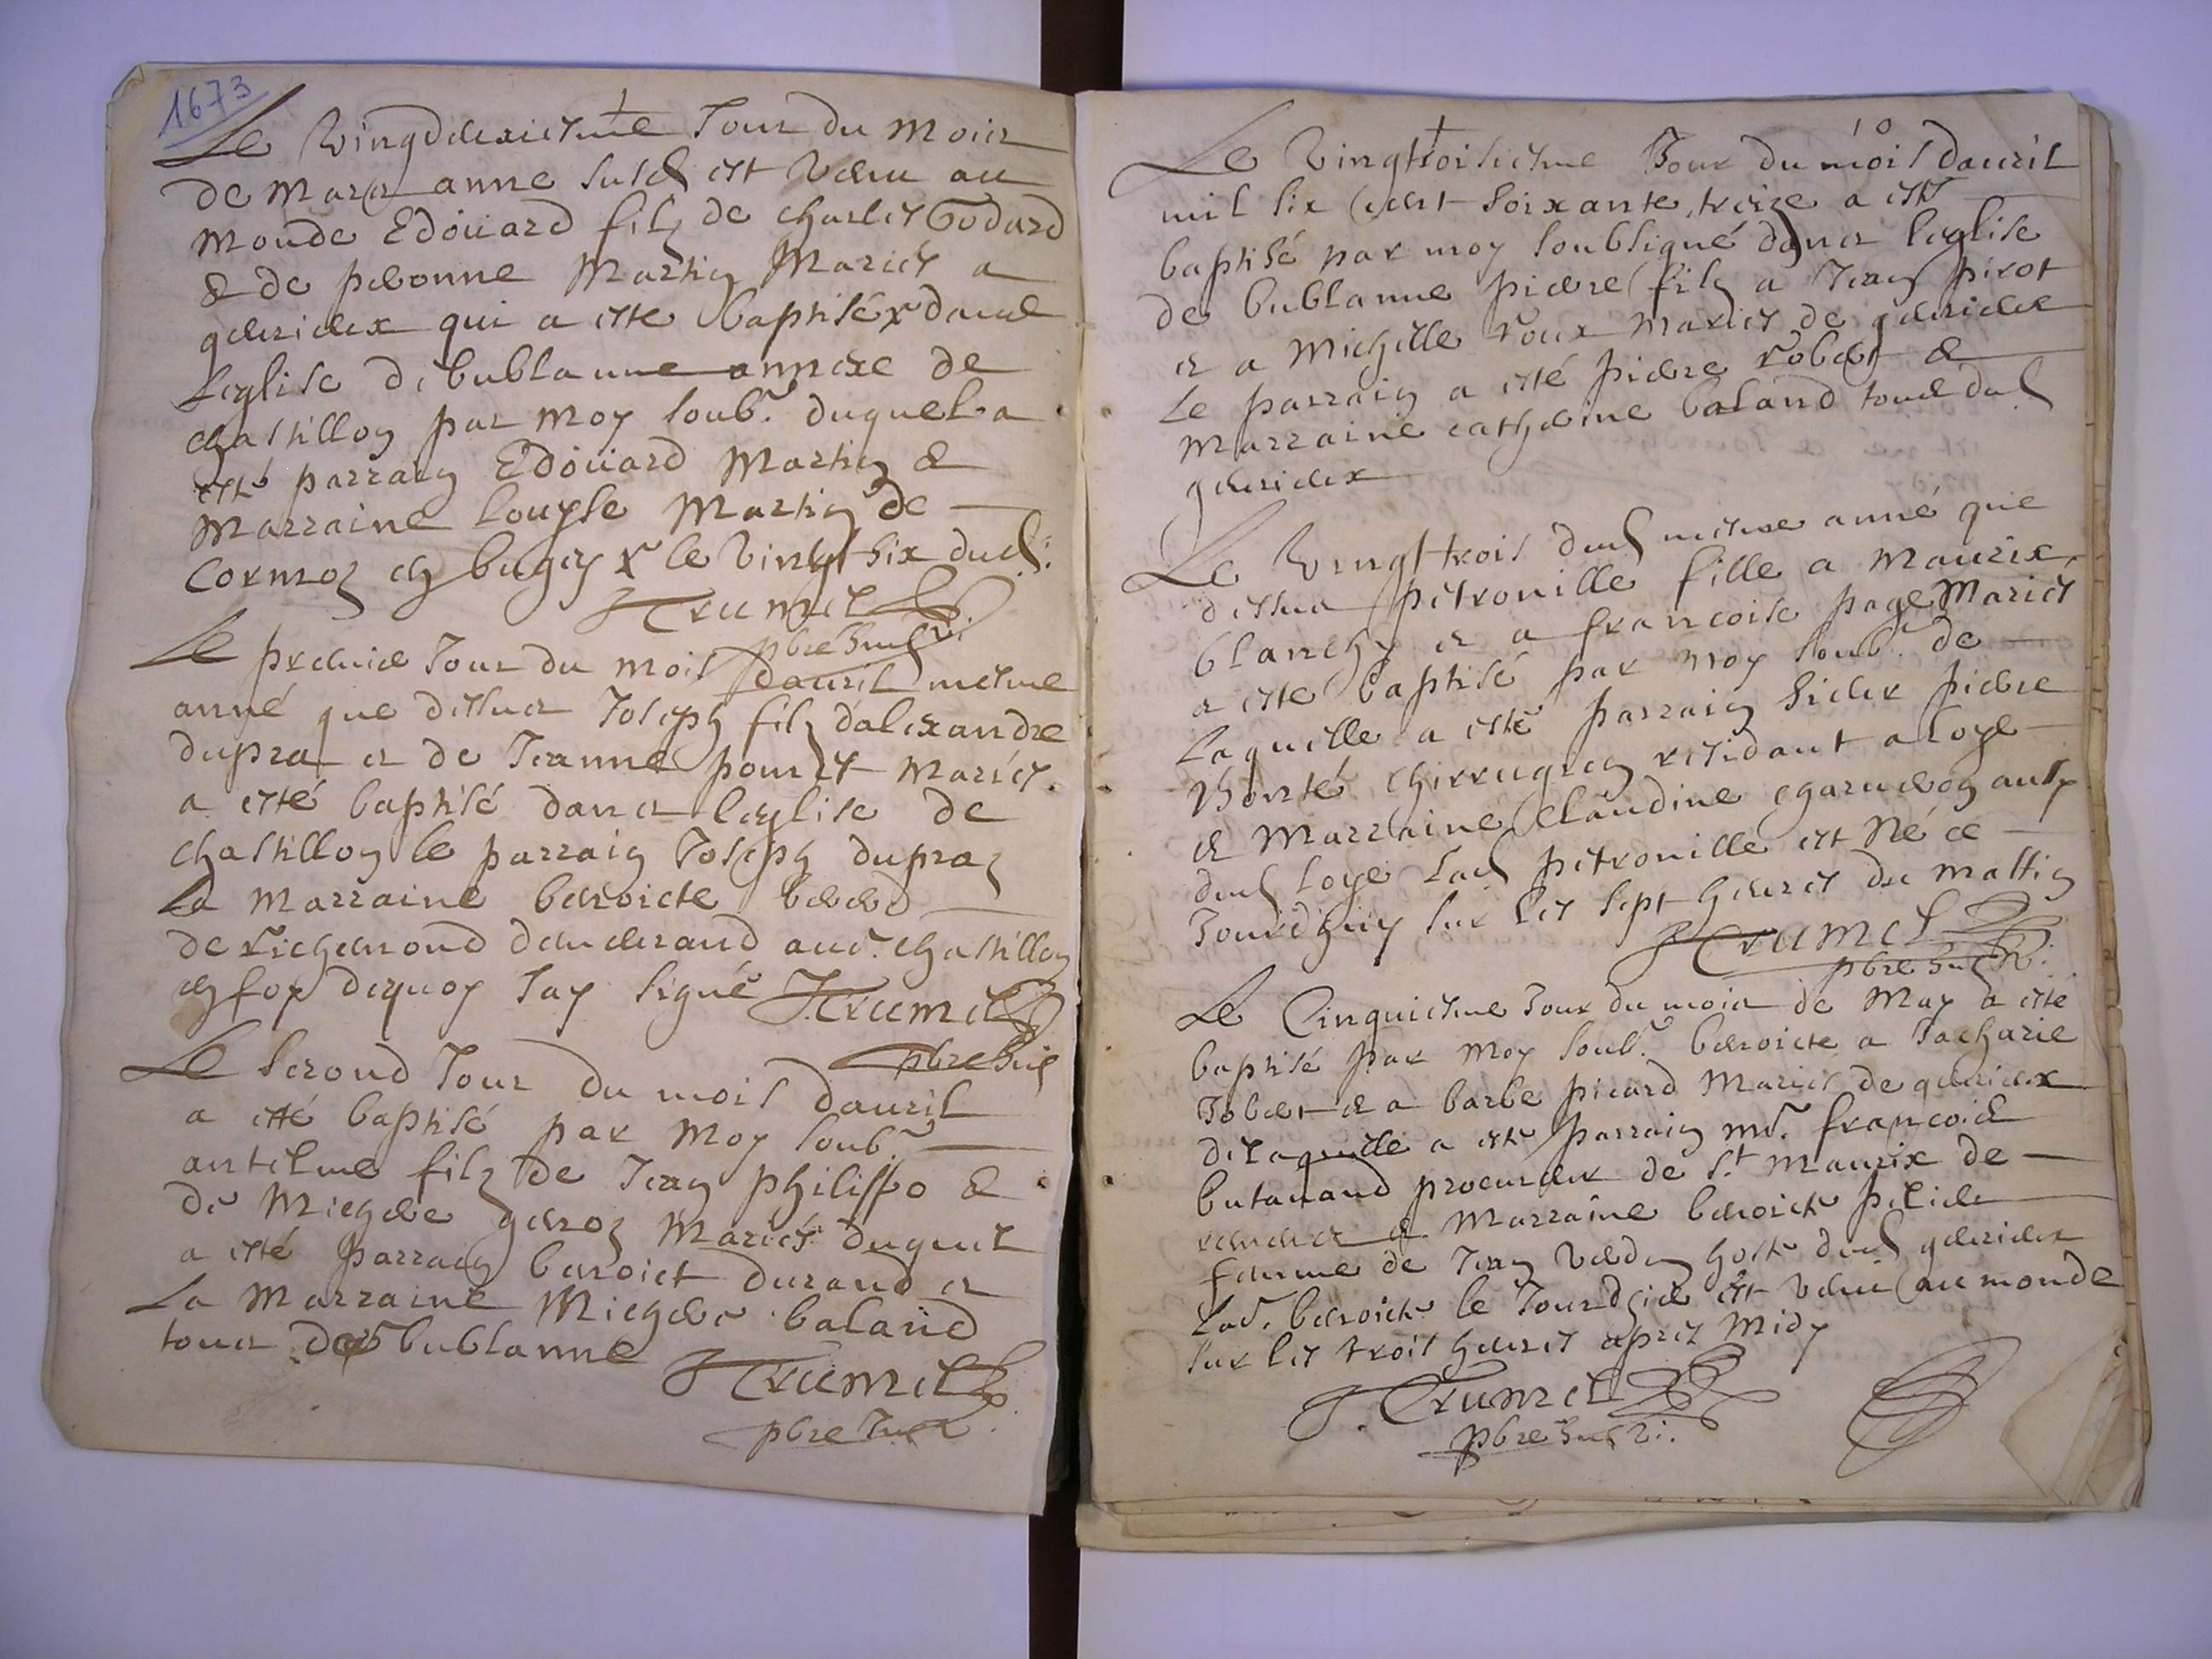 1673
Le Vingdeuxiesme Jour du Mois
de Mars anne susd est Venu au
Monde Edoüard filz de Charles Godard
& de peronne Martin Mariés a
generieux qui a este baptisé x dans
Leglise de bublanne annexe de
chastillon par Moy soubr. duquel a
esté parrain Edoüard Martin &
Marraine Louyse Martin de
Cormoz en bugey x le Vingt six dud.
J Trumel
pbre
Le premier Jour du mois dauril mesme
anné que dessus Joseph filz dalexandre
dupraz et de Jeanne Mariés.
a esté baptisé dans leglise de
chastillon le parrain Joseph dupraz
La Marraine benoicte
de richemond aud. chastillon
en foy dequoy Jay signé J.Trumel
pbre
Le second Jour du mois dauril
a esté baptisé par Moy soubr.
antelme filz de Jean philippo &
de Michele Mariés duquel
a esté parrain benoict durand et
La Marraine Michele baland
tous de bublanne
J Trumel
pbre
10
Le Vingttroisiesme Jour du mois dauril
mil six cent soixante treize a esté
baptisé par moy soubsigné dans leglise
de bublanne pierre filz a Jean pirot
et a Michelle roux mariés de generieux
Le parrain a esté pierre robert &
Marraine catherine baland tous dud
generieux
Le Vingttrois dud mesme anné que
dessus petronille fille a Maurix
blanchy et a francoise page Mariés
a este baptisé par moy soubr. de
Laquelle a esté parrain sieur pierre
chirrugien residant a loye
et Marraine Claudine aussy
dud loye Lad petronille est Né ce
Jourdhuy sur les sept heures du mattin
J Trumel
pbre
Le Cinquiesme Jour du mois de May a esté
baptisé par Moy soubr. benoicte a Jacharie
Jobert et a barbe picard Mariés de generieux
de laquelle a esté parrain mr. francois
butauand procureur de St Maurix de
& Marraine benoicte
femme de Jean hoste dud generieux
Lad. benoicte le Jourdhier est Venu au monde
sur les trois heures apres Midy
J. Trumel
pbre